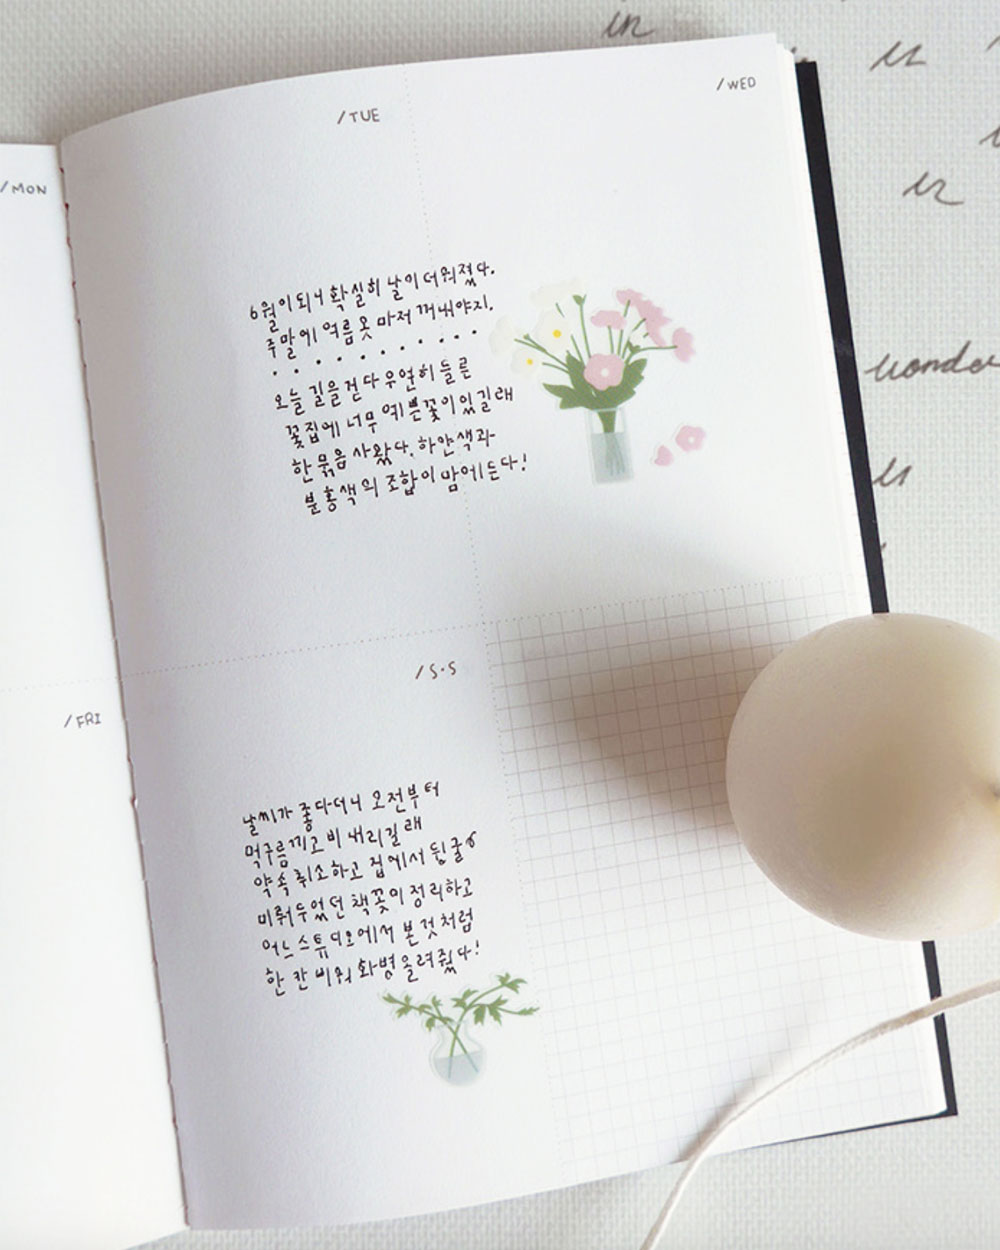 /MON
/TUE
/WED
6월이 되니 확실히 날이 더워졌다.
주말에 여름 옷 마저 꺼내야지.
오늘 길을 걷다 우연히 들른
꽃집에 너무 예쁜 꽃이 있길래
한 묶음 사왔다. 하얀색과
분홍색의 조합이 맘에 든다!
/FRI
/S·S
날씨가 좋다더니 오전부터
먹구름 끼고 비 내리길래
약속 취소하고 집에서 뒹굴
미뤄두었던 책꽂이 정리하고
어느 스튜디오에서 본 것처럼
한 칸 비워 화병 올려줬다!
in